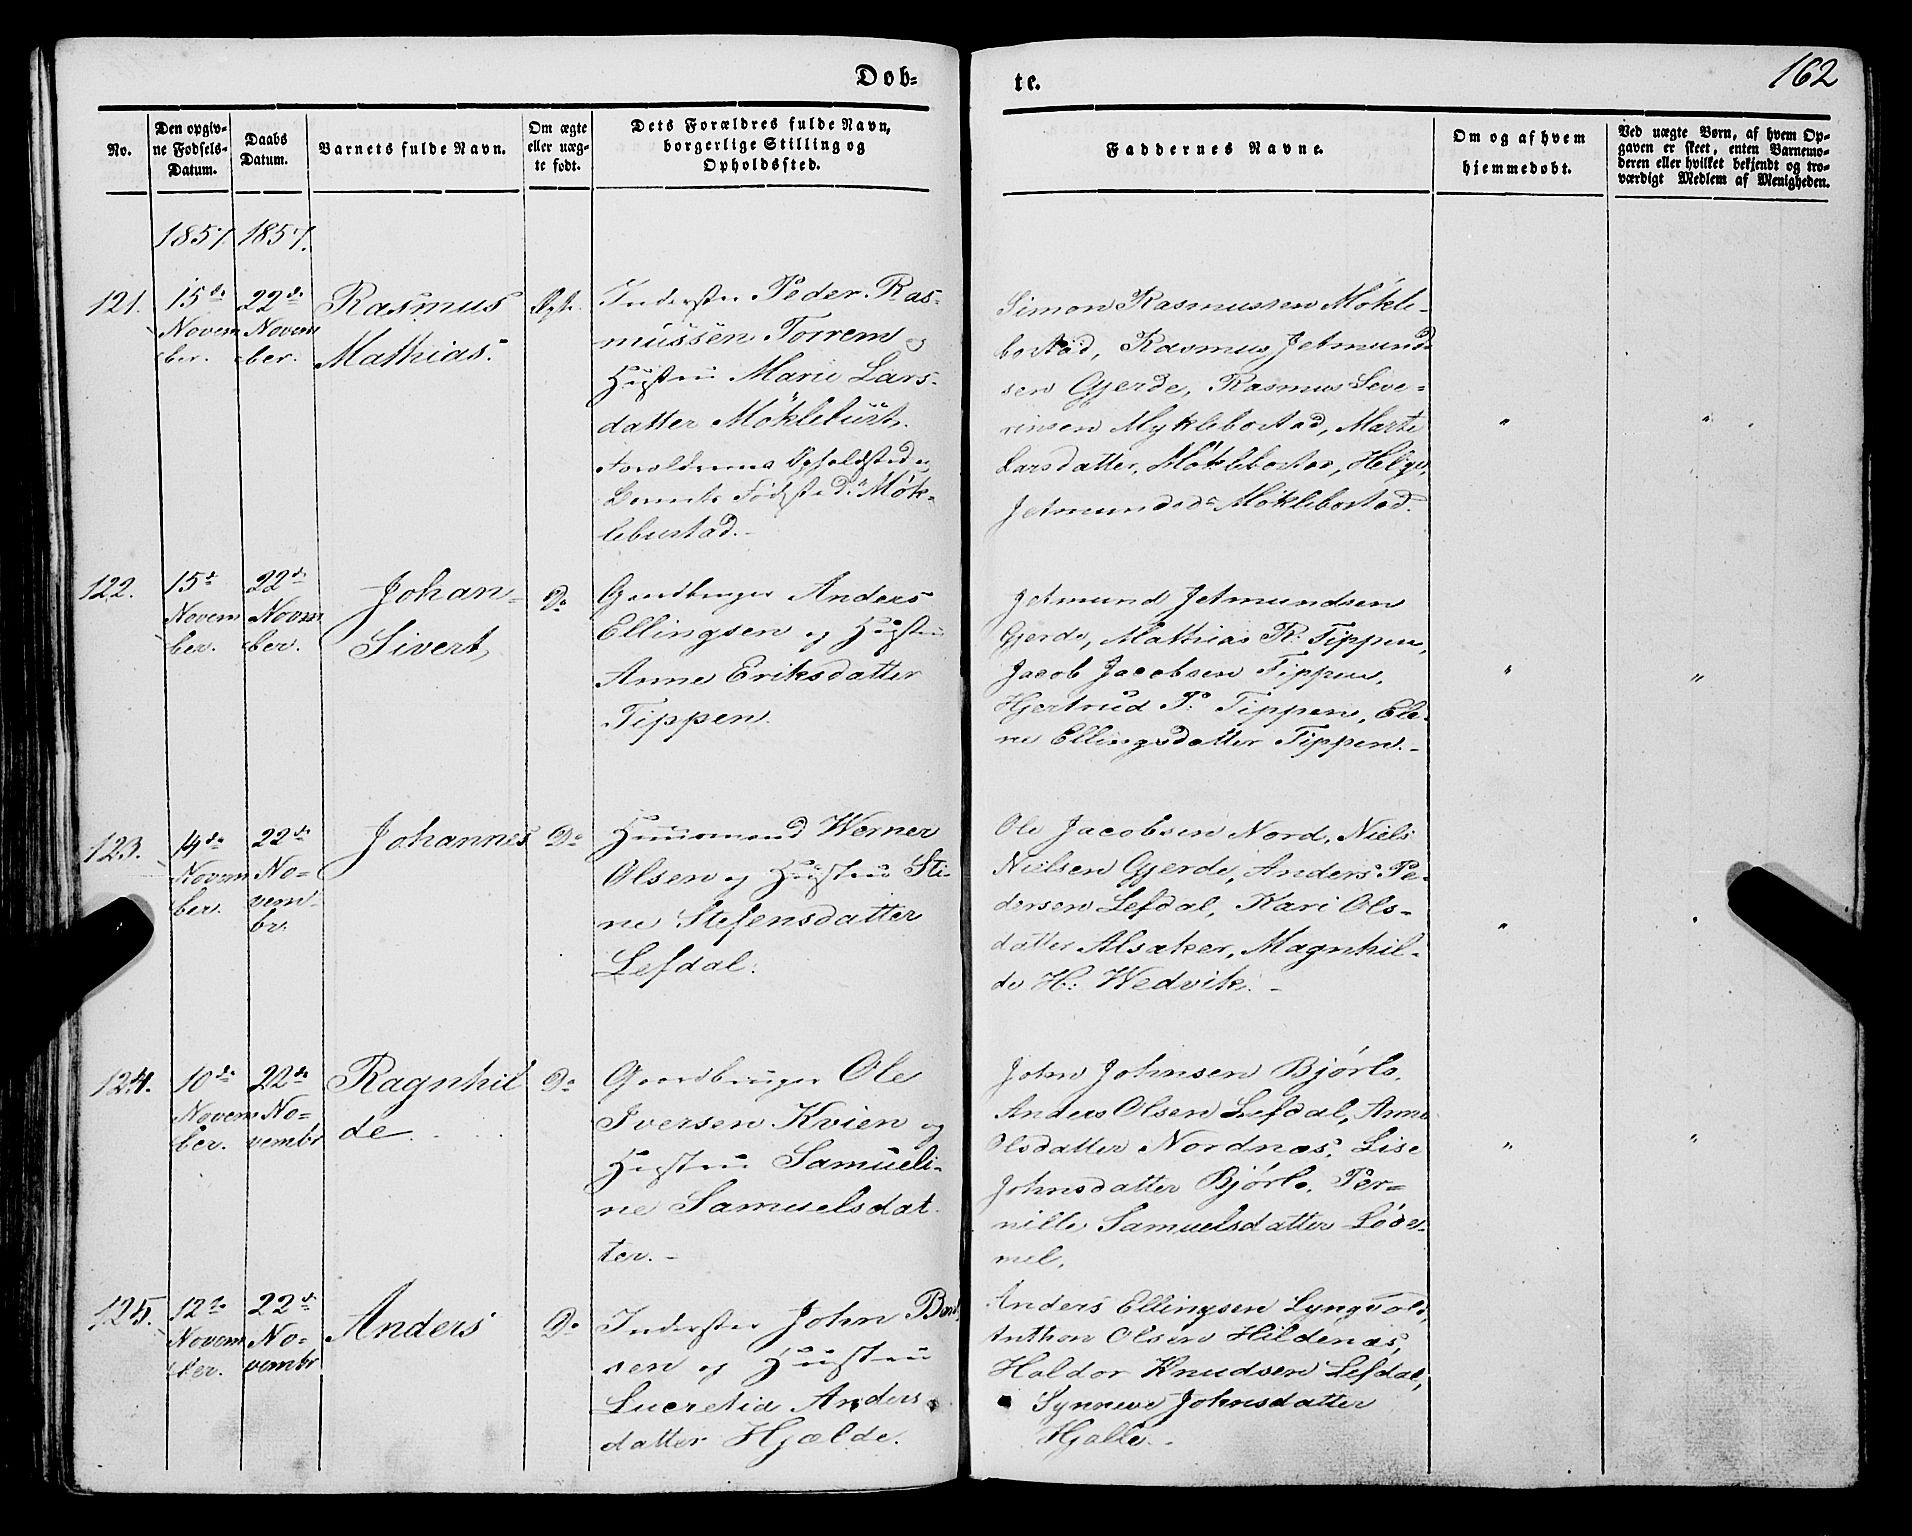 Dob-
te.
162
No.
Den opgiv-
ne Fødsels-
Datum.
Daabs
Datum.
Barnets fulde Navn.
Om ægte
eller uæg-
te født.
Dets Forældres fulde Navn,
borgerlige Stilling og
Opholdssted.
Faddernes Navne.
Om og af hvem
hjemmedøbt.
Ved uægte Børn, af hvem Op-
gaven er skeet, enten Barnemo-
deren eller hvilket bekjendt og tro-
værdigt Medlem af Menigheden.
1857. 1857.
121.
15de
Novem
ber.
22de
Novem
ber.
Rasmus
Mathias.
Ægte.
Inderster Peder Ras-
mussen Torrem og
Hustru Marie Lars-
datter Möklebust.
Forældrenes Opholdsted og
Barnets Fødsted: Møk-
lebustad.-
Simon Rasmussen Mökle-
bostad, Rasmus Jetmund
sen Gjerde, Rasmus Seve-
rinsen Myklebostad, Marte
Larsdatter, Möklebostad, Helge
Jetmundsdr Möklebostad.
" "
122.
15de
Novem
ber.
22de
Novem
ber.
Johan
Sivert,
Do
Gaardbruger Anders
Ellingsen og Hustru
Anne Eriksdatter
Tippen.
Jetmund Jetmundsen
Gjerde, Mathias R: Tippen,
Jacob Jacobsen Tippen,
Hjertrud P: Tippen, Ele-
ne Ellingsdatter Tippen.-
" "
123.
14de
Novem
ber.
22de
No-
vem-
br.
Johannes
Do
Huusmand Werner
Olsen og Hustru Sti-
ne Stefensdatter
Lefdal.
Ole Jacobsen Nord, Niels
Nielsen Gjerde, Anders Pe-
dersen Lefdal, Kari Ols-
datter Alsaker, Magnhil-
de H: Wedvik.-
" "
124.
10de
Novem
ber.
22de
No-
vembr
Ragnhil
de.
Do
Gaardbruger Ole
Iversen Kvien og
Hustru Samueli-
ne Samuelsdat
ter.-
John Johnsen Bjørlo,
Anders Olsen Lefdal, Anne
Olsdatter Nordnæs, Lise
Johnsdatter Bjørlo, Per-
nille Samuelsdatter Løde-
mel.
" "
125.
12te
Novem
ber.
22de
No-
vembr
Anders
Do
Inderster John
sen og Hustru
Lucretia Anders
datter Hjælde.
Anders Ellingsen Lyngvold,
Anthon Olsen Hildenæs,
Haldor Knudsen Lefdal,
Synneve Johnsdatter
Hjalle.-